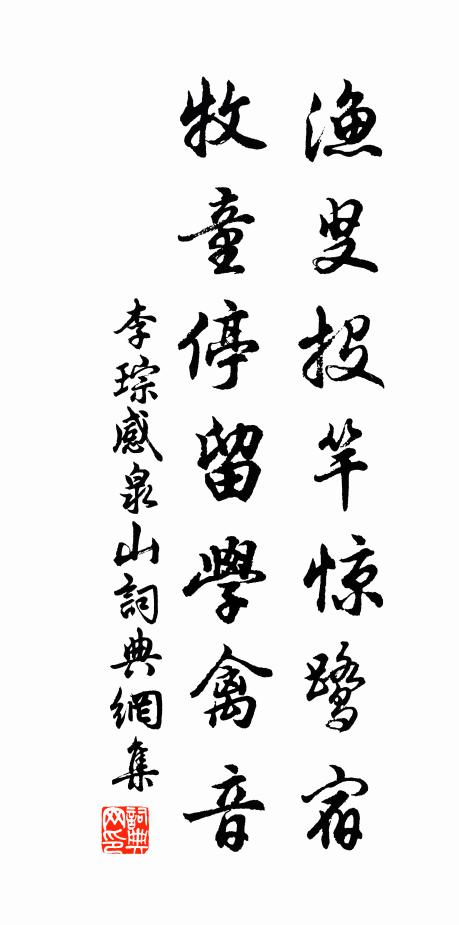 渔叟投竿惊鹭宿
牧童停留學禽音
李琮感泉山詞典網集
詞典網印